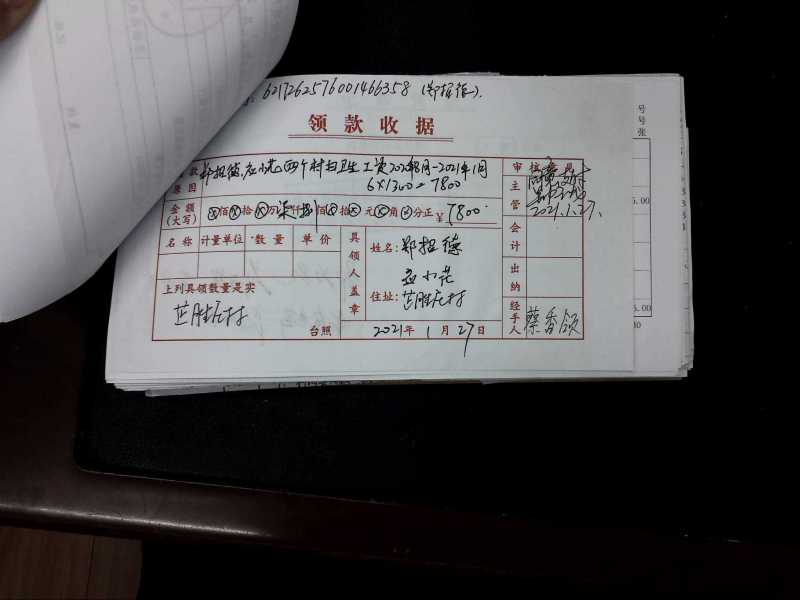 6217262576001466358 (郑招德).
领款收据
领款原因 郑招德、应小花两个村扫卫生工资2020年8月-2021年1月
6×1300=7800
金额(大写) ⊗佰⊗拾⊗万柒仟捌佰⊗拾⊗元⊗角⊗分正 ¥7800
名称 计量单位 数量 单价
上列具领数量是实
芷胜庄村
台照
具领人盖章
姓名: 郑招德
应小花
住址: 芷胜庄村
2021年1月27日
审核意见
主管
2021.1.27.
会计
出纳
经手人 蔡香颌
号
号
张
5.00
5.00